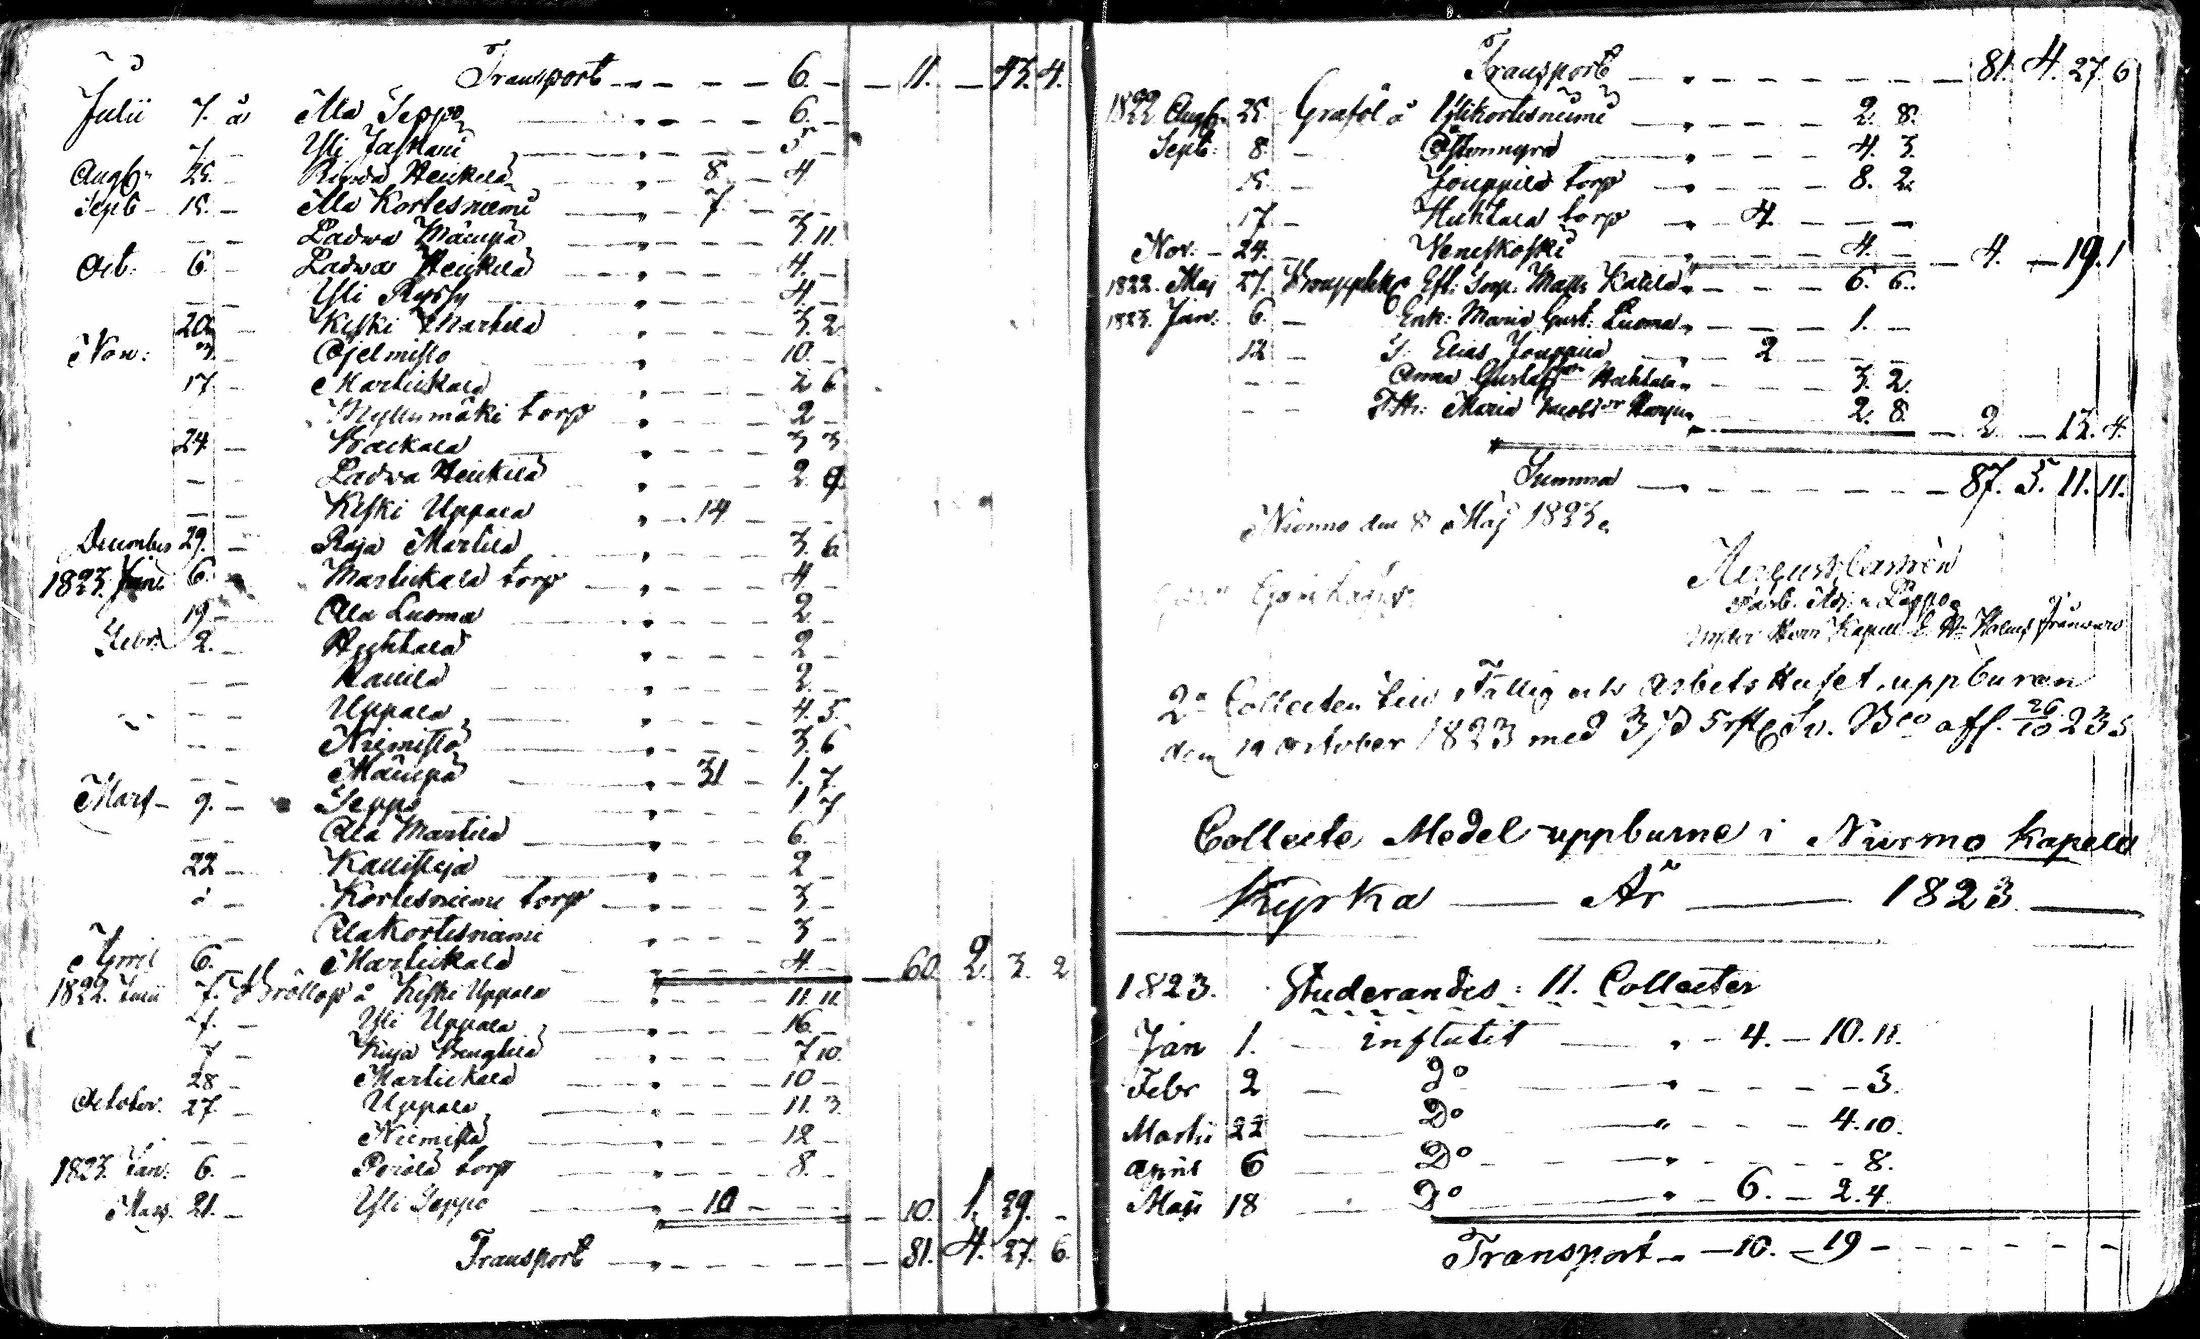 Transport 6. 11. 43. 4.
Julii 7. å Ala Seppo 6.
7. Yli Jaskari 5
Aug. 25. Heikkilä 8 4
Sept 15. Ala Kortesniemi 7.
Ladwa Mäenpä 3. 11.
Oct. 6. Ladwa Heikkilä 4.
Yli Ryssy 4.
20. Keski Martila 3. 2
Nov: 3. Ojelmisto 10.
17. Martickala 2 6
Myllumäki torp 2
24. Backala 3 3
Ladwa Heikkilä 2. 9.
Keski Uppala 14
December 29. Raja Martila 3. 6
1823. Jan. 6. Martickala torp 4.
19. Ala Luoma 2
Febr. 2. Huhtala 2
Kallila 2.
Uppala 4. 5.
Niemistö 3. 6
Mäenpä 31 1. 7.
Mars 9. Seppo 1 7
Ala Martila 6.
22 Kallisteja 2
Kortesniemi torp 3
Ala Kortesniemi 3
April 6. Martickala 4. 60. 2. 3. 2
1822. Julii 7. Bröllop å Keski Uppala 11. 11.
7. Yli Uppala 16
7 Kuja Bengtila 7 10.
28 Martickala 10
October. 27. Uppala 11. 3.
Niemistö 12
1823. Jan. 6. Perälä torp 8.
Mars. 21. Yli Seppo 10 10. 1. 29.
Transport 81. 4. 27. 6.
Transport 81. 4. 27. 6
1822 Aug. 25. Graföl å Ylikortesniemi 2. 8.
Sept. 8. Östermyra 4. 3.
15. Jouppila torp 8. 2.
17. Huhtala torp 4.
Nov. 24. Weneskoski 4. 4. 19. 1
1822. Maj 27. Matts Kallila 6. 6.
1823. Jan. 6. Enk: Maria Gust: Luoma 1.
12 Elias Jouppila 2
Anna Gustafsdr Huhtala 3. 2.
Maria Jacobsdr 2. 8. 2. 13. 4.
Summa 87. 5. 11. 11.
Nurmo den 8 Maj 1823.
August
Adj. i Lappo
under Herr Kapell. frånvaro
2a Collecten till Fattig och Arbets Huset, uppburen
dem 19 October 1823 med
Collecte Medel uppburne i Nurmo Kapells
Kyrka År 1823
1823. Studerandes: 11. Collecter
Jan 1. influtit 4. 10. 11.
Febr 2 Do 3.
Martii 22 Do 4. 10.
April 6 Do 8.
Maji 18 Do 6. 2. 4.
Transport 10. 19